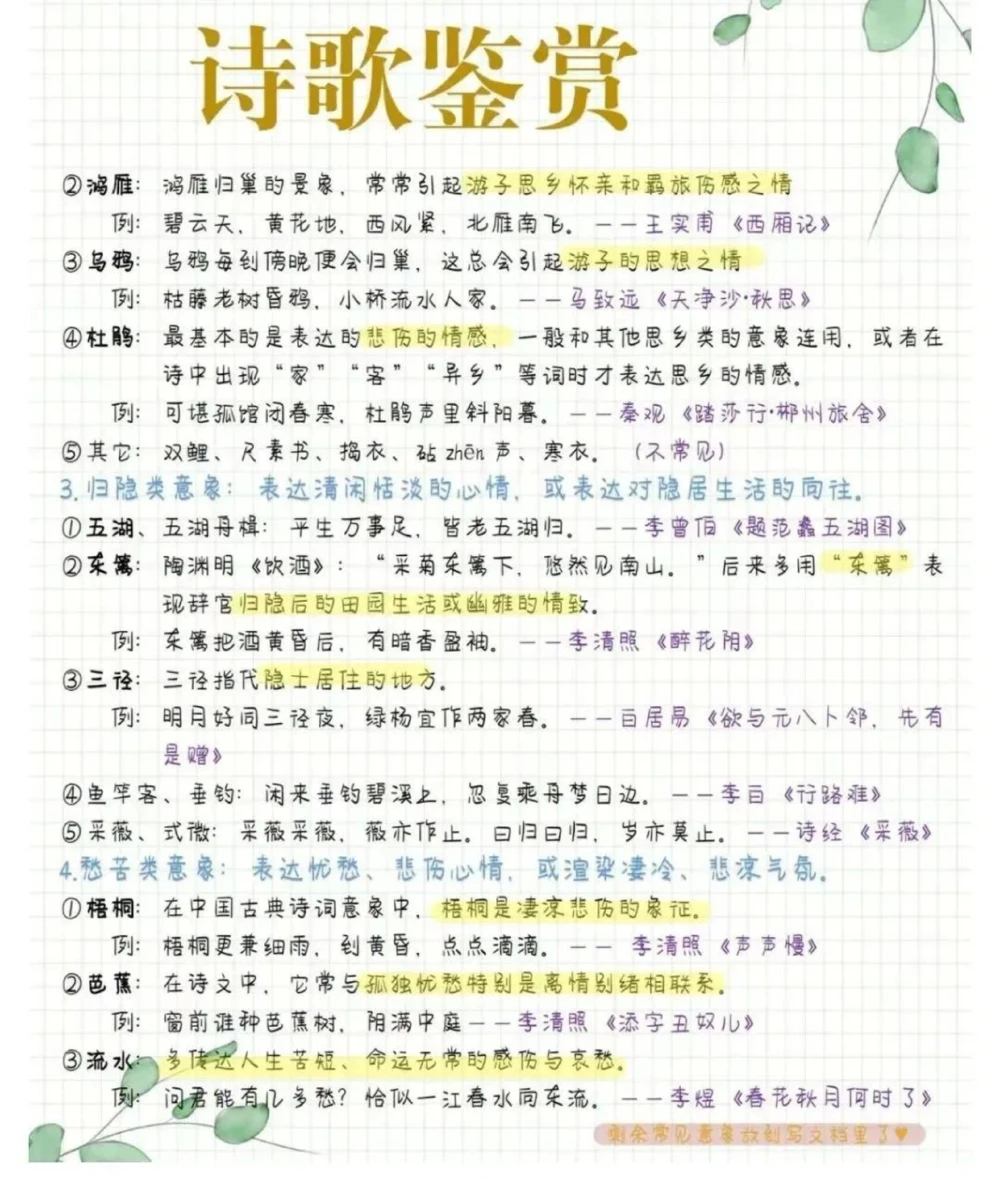 诗歌鉴赏
②鸿雁：鸿雁归巢的景象，常常引起游子思乡怀亲和羁旅伤感之情
例：碧云天，黄花地，西风紧，北雁南飞。——王实甫《西厢记》
③乌鸦：乌鸦每到傍晚便会归巢，这总会引起游子的思想之情
例：枯藤老树昏鸦，小桥流水人家。——马致远《天净沙·秋思》
④杜鹃：最基本的是表达的悲伤的情感，一般和其他思乡类的意象连用，或者在
诗中出现“家”“客”“异乡”等词时才表达思乡的情感。
例：可堪孤馆闭春寒，杜鹃声里斜阳暮。——秦观《踏莎行·郴州旅舍》
⑤其它：双鲤、尺素书、捣衣、砧zhēn声、寒衣。（不常见）
3.归隐类意象：表达清闲恬淡的心情，或表达对隐居生活的向往。
①五湖、五湖舟楫：平生万事足，皆老五湖归。——李曾伯《题范蠡五湖图》
②东篱：陶渊明《饮酒》：“采菊东篱下，悠然见南山。”后来多用“东篱”表
现辞官归隐后的田园生活或幽雅的情致。
例：东篱把酒黄昏后，有暗香盈袖。——李清照《醉花阴》
③三径：三径指代隐士居住的地方。
例：明月好同三径夜，绿杨宜作两家春。——白居易《欲与元八卜邻，先有
是赠》
④鱼竿客、垂钓：闲来垂钓碧溪上，忽复乘舟梦日边。——李白《行路难》
⑤采薇、式微：采薇采薇，薇亦作止。曰归曰归，岁亦莫止。——诗经《采薇》
4.愁苦类意象：表达忧愁、悲伤心情，或渲染凄冷、悲凉气氛。
①梧桐：在中国古典诗词意象中，梧桐是凄凉悲伤的象征。
例：梧桐更兼细雨，到黄昏，点点滴滴。——李清照《声声慢》
②芭蕉：在诗文中，它常与孤独忧愁特别是离情别绪相联系。
例：窗前谁种芭蕉树，阴满中庭——李清照《添字丑奴儿》
③流水：多传达人生苦短、命运无常的感伤与哀愁。
例：问君能有几多愁？恰似一江春水向东流。——李煜《春花秋月何时了》
剩余常见意象放到写文档里了♥